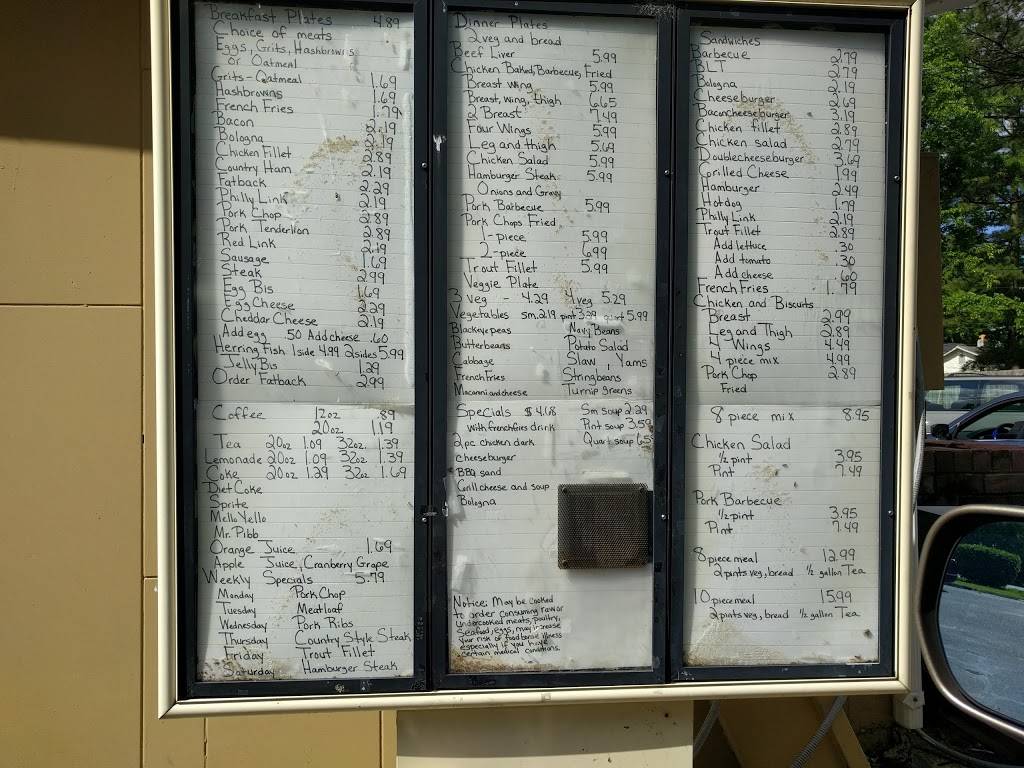 Breakfast Plates 4.89
Choice of meats
Eggs, Grits, Hashbrowns
or Oatmeal
Grits-Oatmeal 1.69
Hashbrowns 1.69
French Fries 1.79
Bacon 2.19
Bologna 2.19
Chicken Fillet 2.89
Country Ham 2.19
Fatback 2.29
Philly Link 2.19
Pork Chop 2.89
Pork Tenderlion 2.89
Red Link 2.19
Sausage 1.69
Steak 2.99
Egg Bis 1.69
Egg Cheese 2.29
Cheddar Cheese 2.19
Add egg .50 Add cheese .60
Herring Fish 1 side 4.99 2 sides 5.99
Jelly Bis 1.29
Order Fatback 2.99
Coffee 12oz .89
20oz 1.19
Tea 20oz 1.09 32oz 1.39
Lemonade 20oz 1.09 32oz 1.39
Coke 20oz 1.29 32oz 1.69
Diet Coke
Sprite
Mello Yello
Mr. Pibb
Orange Juice 1.69
Apple Juice, Cranberry Grape
Weekly Specials 5.79
Monday Pork Chop
Tuesday Meatloaf
Wednesday Pork Ribs
Thursday Country Style Steak
Friday Trout Fillet
Saturday Hamburger Steak
Dinner Plates
2 veg and bread
Beef Liver 5.99
Chicken Baked, Barbecue, Fried
Breast wing 5.99
Breast, wing, thigh 6.65
2 Breast 7.49
Four Wings 5.99
Leg and thigh 5.69
Chicken Salad 5.99
Hamburger Steak 5.99
Onions and Gravy
Pork Barbecue 5.99
Pork Chops Fried
1-piece 5.99
2-piece 6.99
Trout Fillet 5.99
Veggie Plate
3 veg - 4.29 4 veg 5.29
Vegetables sm. 2.19 pint 3.29 quart 5.99
Blackeye peas Navy Beans
Butterbeans Potato Salad
Cabbage Slaw, Yams
French Fries Stringbeans
Macaroni and cheese Turnip greens
Specials $4.68 Sm soup 2.29
with french fries drink Pint soup 3.59
2pc chicken dark Quart soup
cheeseburger
BBQ sand
Grill cheese and soup
Bologna
Notice: May be cooked
to order consuming raw or
undercooked meats, poultry,
seafood, eggs, may increase
your risk of food borne illness
especially if you have
certain medical conditions.
Sandwiches
Barbecue 2.79
BLT 2.79
Bologna 2.19
Cheeseburger 2.69
Baconcheeseburger 3.19
Chicken fillet 2.89
Chicken salad 2.79
Doublecheeseburger 3.69
Grilled Cheese 1.99
Hamburger 2.49
Hotdog 1.79
Philly Link 2.19
Trout Fillet 2.89
Add lettuce .30
Add tomato .30
Add cheese .60
French Fries 1.79
Chicken and Biscuits
Breast 2.99
Leg and Thigh 2.89
4 Wings 4.49
4 piece mix 4.99
Pork Chop 2.89
Fried
8 piece mix 8.95
Chicken Salad
1/2 pint 3.95
Pint 7.49
Pork Barbecue
1/2 pint 3.95
Pint 7.49
8 piece meal 12.99
2 pints veg, bread 1/2 gallon Tea
10 piece meal 15.99
2 pints veg, bread 1/2 gallon Tea